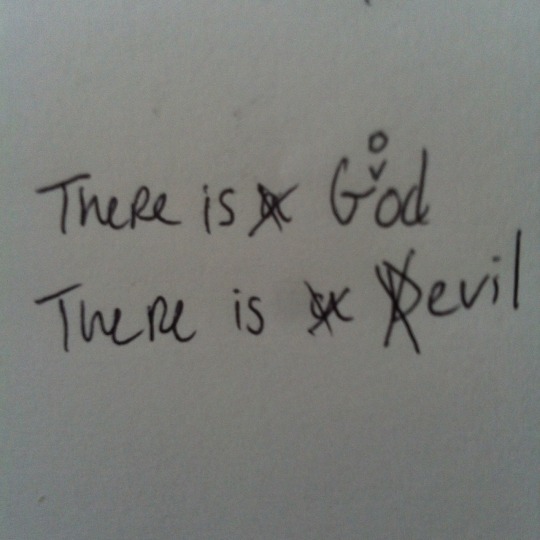 There is a God
o
There is a Devil